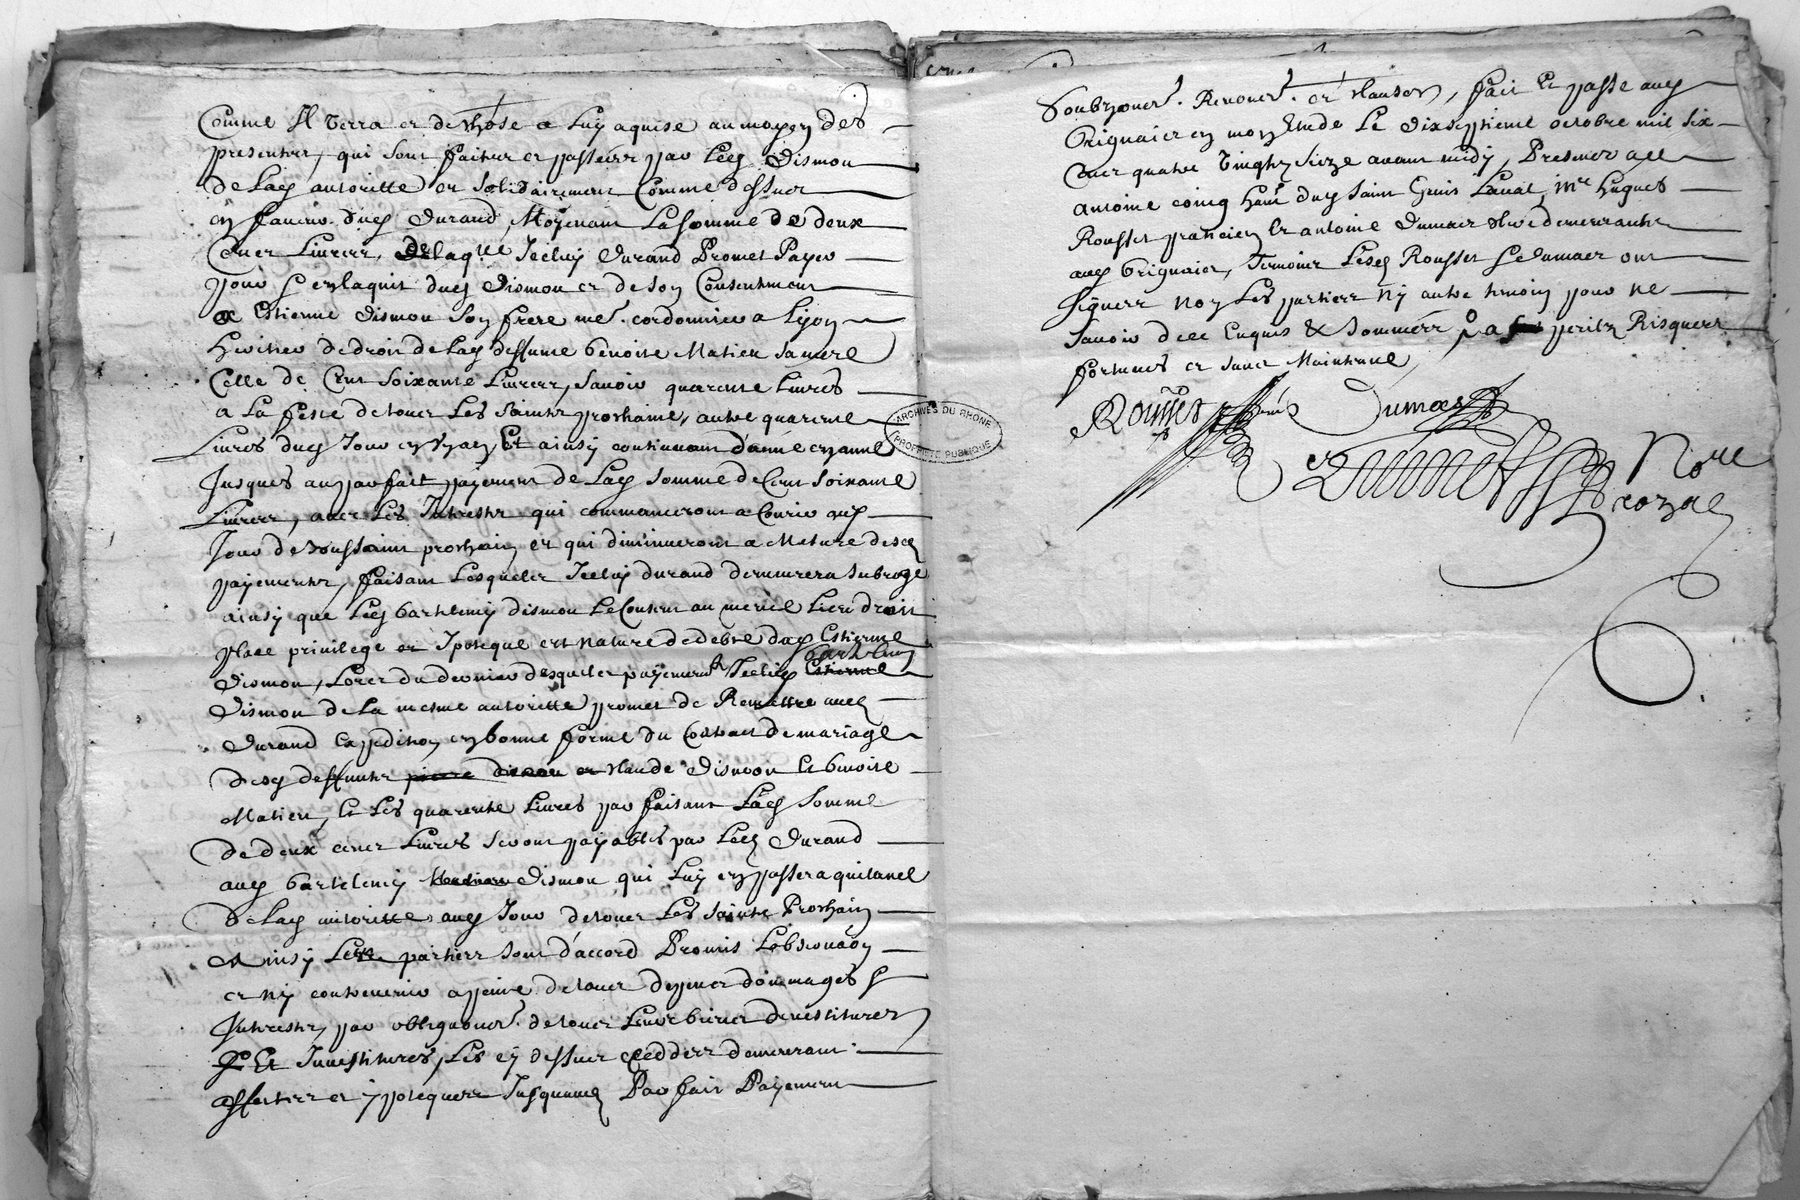 Comme Il verra et de chose a luy aquise au moyen des
presentes, qui sont faittes et passées par led Dismon
de lad autoritté et solidairement comme dessus
en faveur dud Durand, Moyenant la somme de deux
Cent Livres, de laqlle Icelluy Durand Promet Payer
pour & en laquit dud Dismon et de son Consentement
a Estienne Dismon son frere me cordonnier a Lyon
heritier de droit de lad deffunte benoite Matieu sa mere
Celle de Cent soixante Livres, savoir quarente livres
a La feste de touts Les Saints prochaine, autre quarente
Livres dud Jour en Un an Et ainsy continuant d'anné en anné
Jusques au parfait payement de Lad somme de Cent soixante
Livres, avec Les Interests qui commanceront a Courir aud
Jour de Toussaint prochain et qui diminueront a Mesure desd
payements, faisant Lesquels Icelluy durand demeurera subrogé
ainsy que Led bartelemy dismon Le Consent au meme Lieu droit
place privilege et Ipoteque et nature de debte dud Estienne
Dismon, Lors du dernier desquels payements Icelluy Estienne bartelemy
Dismon de La mesme autoritté promet de Remettre aud
Durand Expedition en bonne forme du Contract de mariage
desd deffunts pierre dismon et Claude Dismon & benoite
Matieu, & Les quarente Livres par faisant Lad somme
de deux cent Livres seront payables par Led Durand
aud bartelemy Dismon qui Luy en passera quitance
de lad autoritté aud Jour de touts Les Saints Prochain
Ainsy Les parties sont d'accord Promis L'observer
et ny contrevenir a peine de touts depens domages &
Interests, par obligations de touts Leurs biens devestitures
& Et Investitures, Les cy dessus ceddées demeurant
affectées et ypotequées Jusqu'aud Parfait Payement
Soubmions Renons et clauses, fait et passé aud
Brignais en mon Etude Le dixseptieme octobre mil six
Cent quatre vingts seize avant midy, Presents a ce
antoine coing habt dud saint Genis Laval, me hugues
Rousset pratiцien & antoine Dumas demeurants
aud brignais, Temoins Lesd Rousset & dumas ont
signé non Les parties ny autre temoin pour ne
savoir de ce Enquis & Sommés, a perils Risques
fortunes et sans Maintenue
Rousset
Dumas
Nore
Royal
ARCHIVES DU RHONE
PROPRIÉTÉ PUBLIQUE